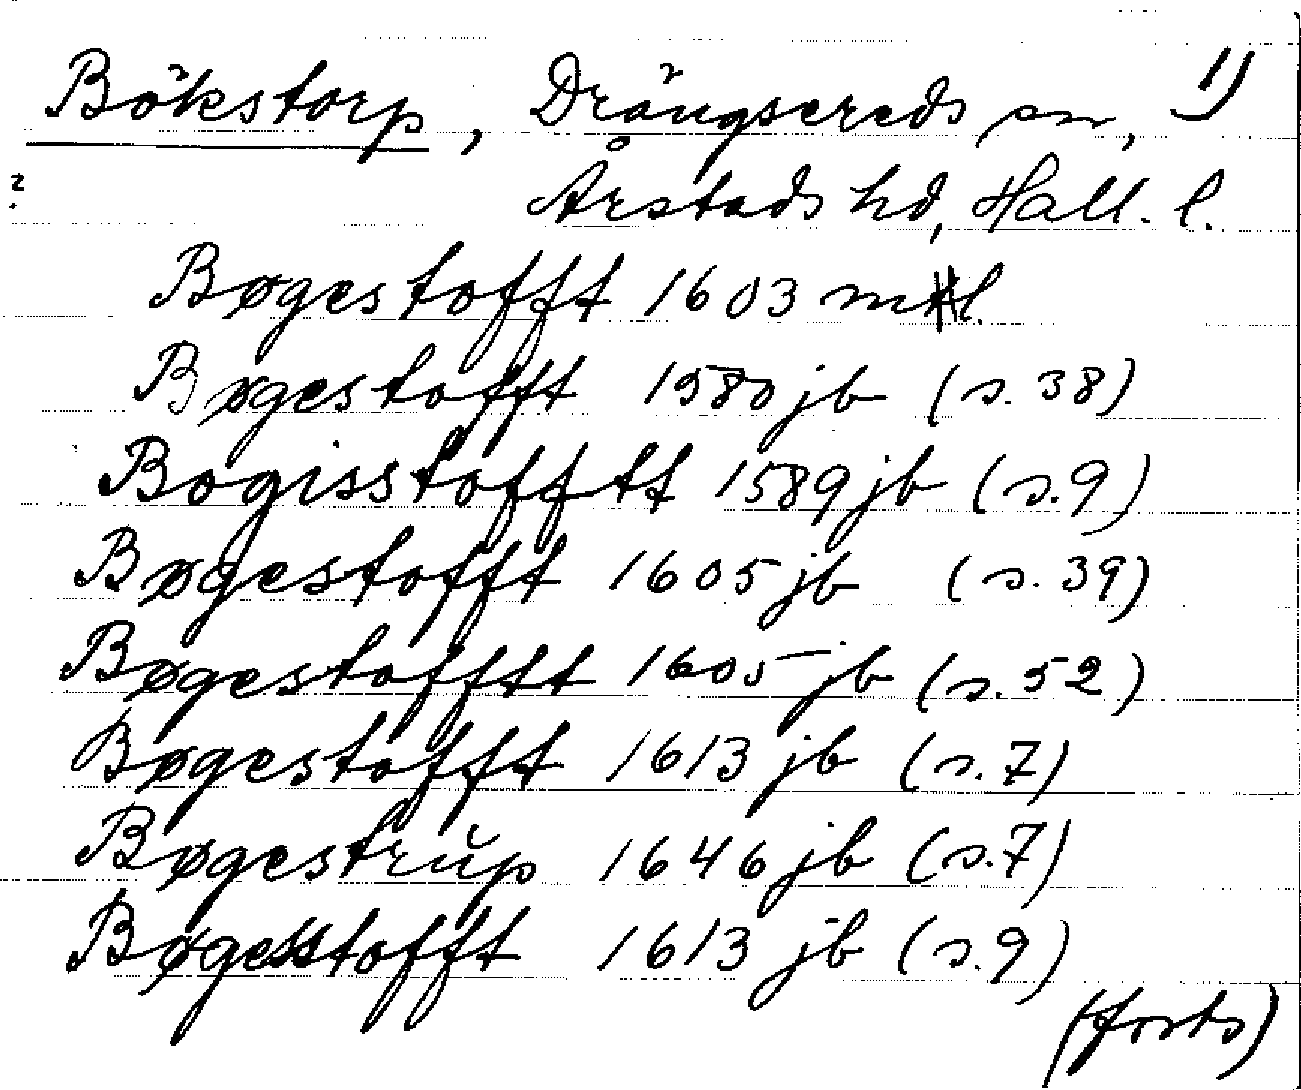 Bökstorp, Drängsereds sn, 1)
Årstads hd, Hall. l.
Bøgestofft 1603 mtl
Bøgestofft 1580 jb (s. 38)
Bogisstofftt 1589 jb (s. 9)
Bøgestofft 1605 jb (s. 39)
Bøgestofftt 1605 jb (s. 52)
Bøgestofft 1613 jb (s. 7)
Bøgestrŭp 1646 jb (s. 7)
Bøgesstofft 1613 jb (s. 9)
(forts)